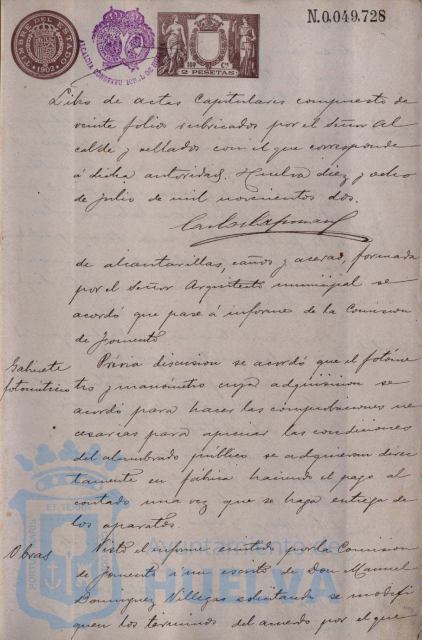 TIMBRE DEL ESTADO
1902
ALCALDIA CONSTITUCIONAL DE
2 PESETAS
N.0.049.728
Libro de actas Capitulares compuesto de
veinte folios rubricados por el Señor Al
calde y sellados con el que corresponde
á dicha autoridad. Huelva diez y ocho
de julio de mil novecientos dos.
de alcantarillas, caños y aceras, formada
por el Señor Arquitecto municipal se
acordó que pase á informe de la Comision
de Fomento
Gabinete
fotometrico
Prévia discusion se acordó que el fotóme
tro y manómetro cuya adquisicion se
acordó para hacer las comprobaciones ne
cesarias para apreciar las condiciones
del alumbrado público se adquieran direc
tamente en fábrica haciendo el pago al
contado una vez que se haga entrega de
los aparatos.
Obras
Visto el informe emitido por la Comision
de Fomento á un escrito de Don Manuel
Dominguez Villegas solicitando se modifi
quen los términos del acuerdo por el que
Ayuntamiento de
HUELVA